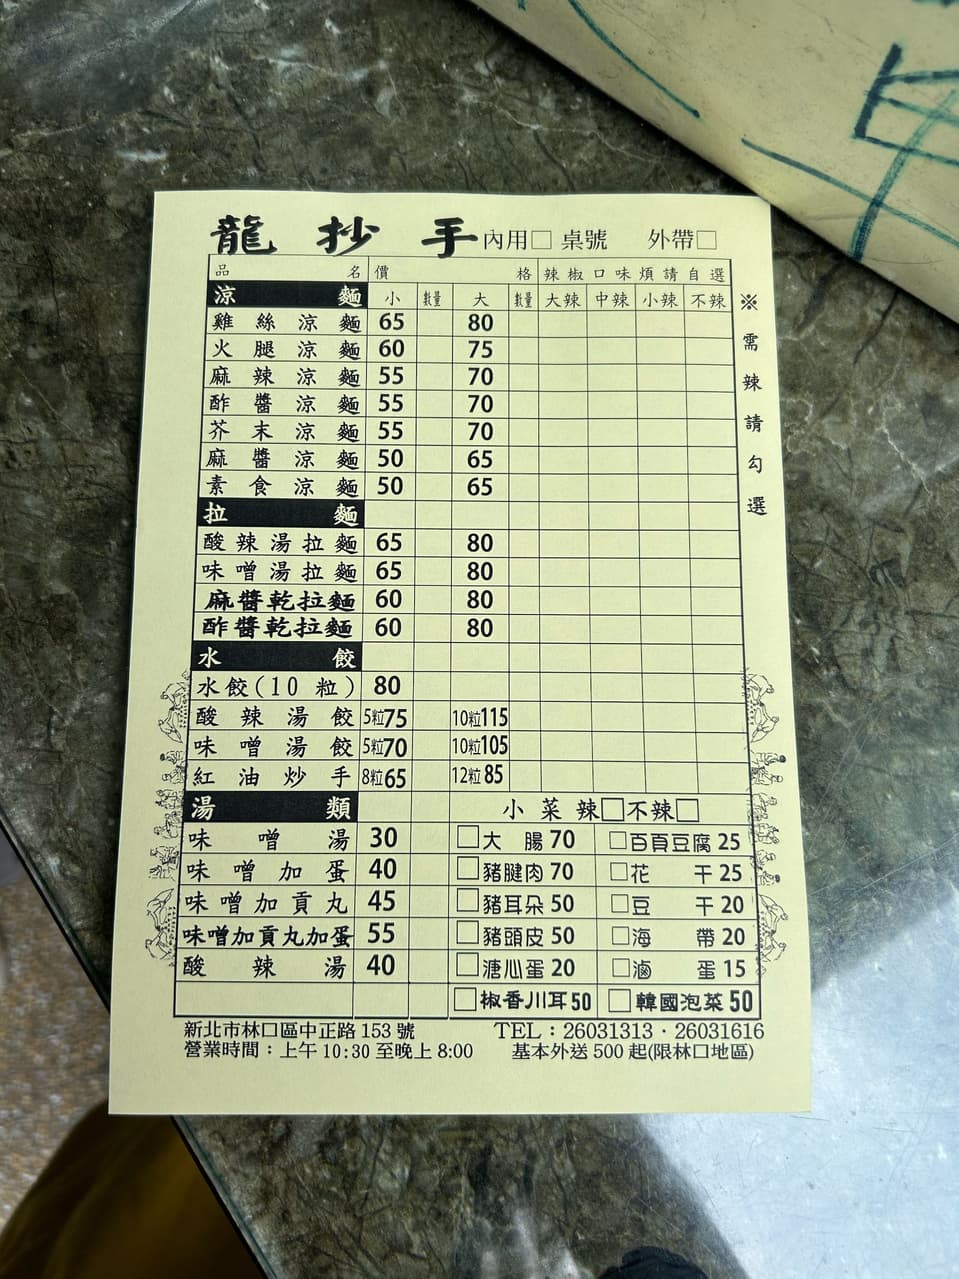 龍抄手 內用□ 桌號 外帶□
品名 價格 辣椒口味煩請自選
涼麵 小 數量 大 數量 大辣 中辣 小辣 不辣
雞絲涼麵 65 80
火腿涼麵 60 75
麻辣涼麵 55 70
酢醬涼麵 55 70
芥末涼麵 55 70
麻醬涼麵 50 65
素食涼麵 50 65
拉麵
酸辣湯拉麵 65 80
味噌湯拉麵 65 80
麻醬乾拉麵 60 80
酢醬乾拉麵 60 80
水餃
水餃(10粒) 80
酸辣湯餃 5粒75 10粒115
味噌湯餃 5粒70 10粒105
紅油炒手 8粒65 12粒85
※需辣請勾選
湯類 小菜 辣□不辣□
味噌湯 30 □大腸 70 □百頁豆腐 25
味噌加蛋 40 □豬腱肉 70 □花干 25
味噌加貢丸 45 □豬耳朵 50 □豆干 20
味噌加貢丸加蛋 55 □豬頭皮 50 □海帶 20
酸辣湯 40 □溏心蛋 20 □滷蛋 15
□椒香川耳 50 □韓國泡菜 50
新北市林口區中正路 153 號 TEL：26031313．26031616
營業時間：上午 10:30 至晚上 8:00 基本外送 500 起(限林口地區)